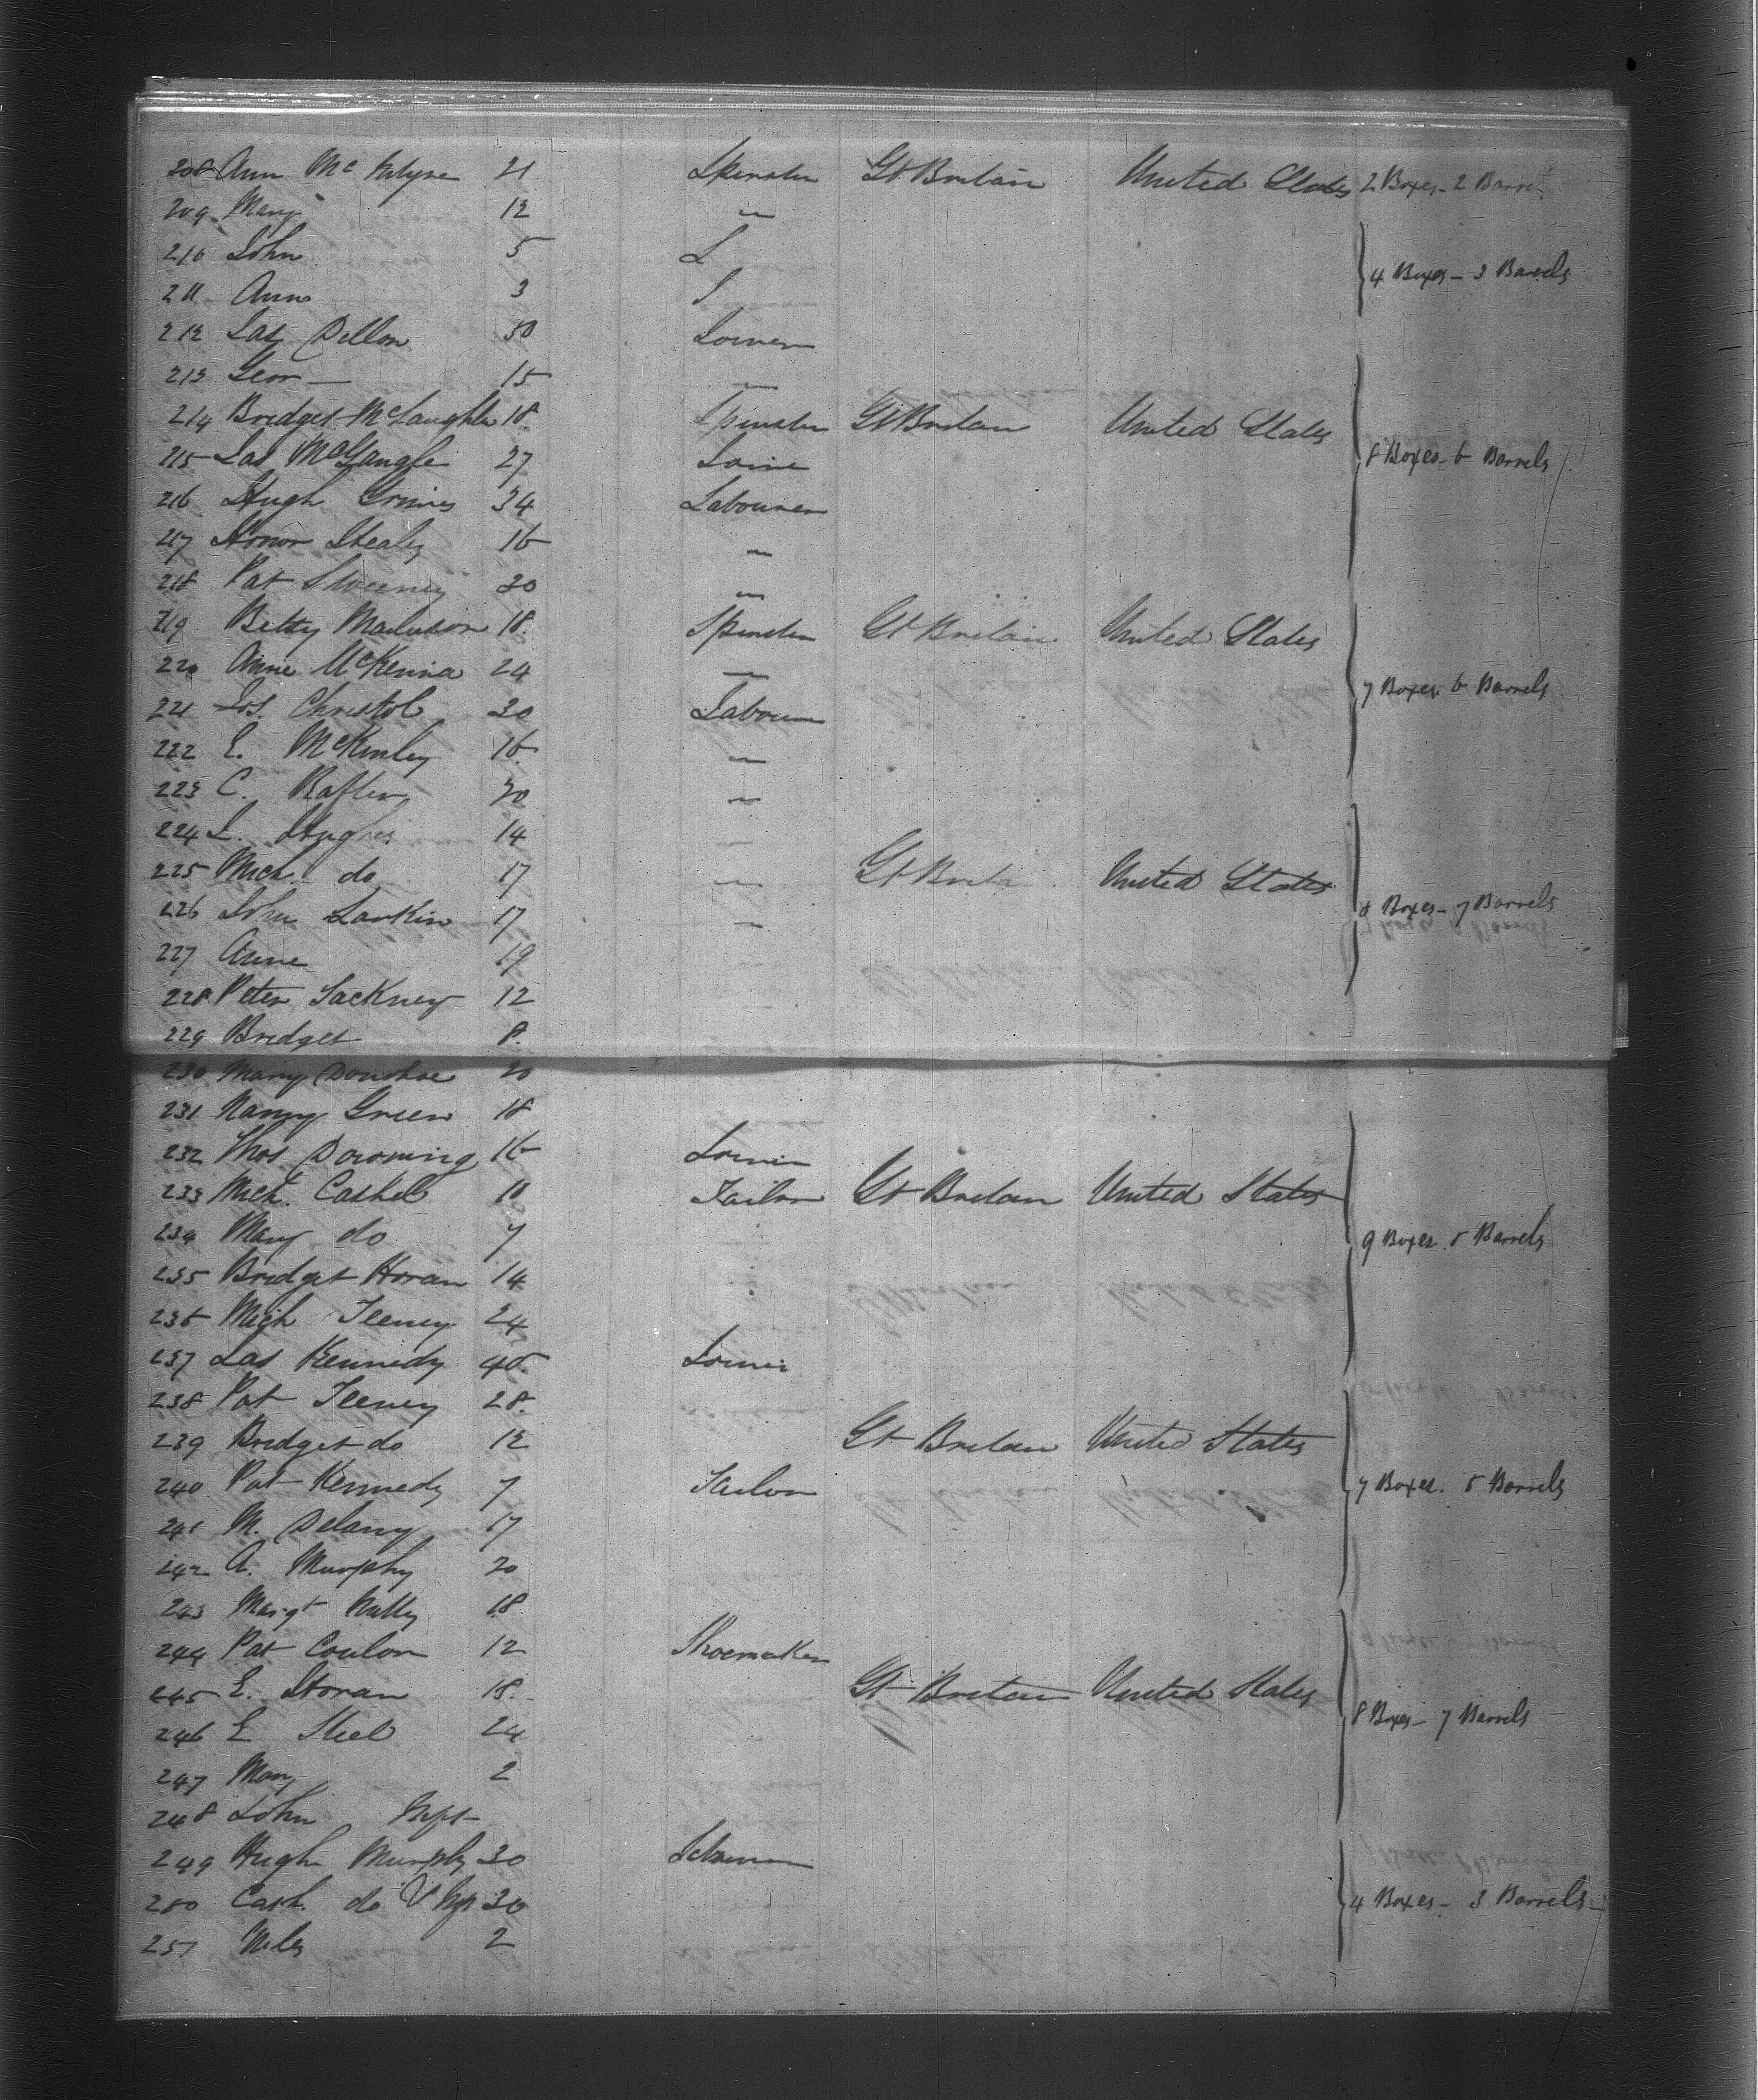 208 Ann Mc Intyre 21 Spinster Gt Britain United States 2 Boxes - 2 Barrels
209 Mary 12 "
210 John 5 4 Boxes - 3 Barrels
211 Ann 3
212 Jas Dillon 30
213 Geor — 15 "
214 Bridget McLaughlin 18 Spinster Gt Britain United States
215 Jas 27 8 Boxes - 6 Barrels
216 Hugh Grimes 34 Labourer
217 Honor Healy 16 "
218 Pat Sweeney 20 "
219 Betty 18 Spinster Gt Britain United States
220 Anne McKenna 24 "
221 Jos. Christol 30 Labourer 7 Boxes. 6 Barrels
222 E. McKinley 16 "
223 C. 20 "
224 J. Hughes 14 "
225 Mich do 17 " Gt Britain United States
226 John Larkin 17 " 8 Boxes - 7 Barrels
227 Anne 19
228 Peter Lackney 12
229 Bridget 8
230 Mary Donohoe 20
231 Nancy Green 18
232 Thos Downing 16
233 Mich. Cashel 10 Tailor Gt Britain United States
234 Mary do 7 9 Boxes. 5 Barrels
235 Bridget Horan 14
236 Mich Feeney 24
237 Jas Kennedy 40
238 Pat Feeney 28
239 Bridget do 12 Gt Britain United States
240 Pat Kennedy 7 Tailor 7 Boxes. 5 Barrels
241 M. Delany 17
242 A. Murphy 20
243 Margt Nully 18
244 Pat Conlon 12 Shoemaker
245 E. Horan 18 Gt Britain United States
246 E 24 8 Boxes - 7 Barrels
247 Mary 2
248 John Inft
249 Hugh Murphy 30
250 Cath do 30 4 Boxes - 3 Barrels
251 Miles 2